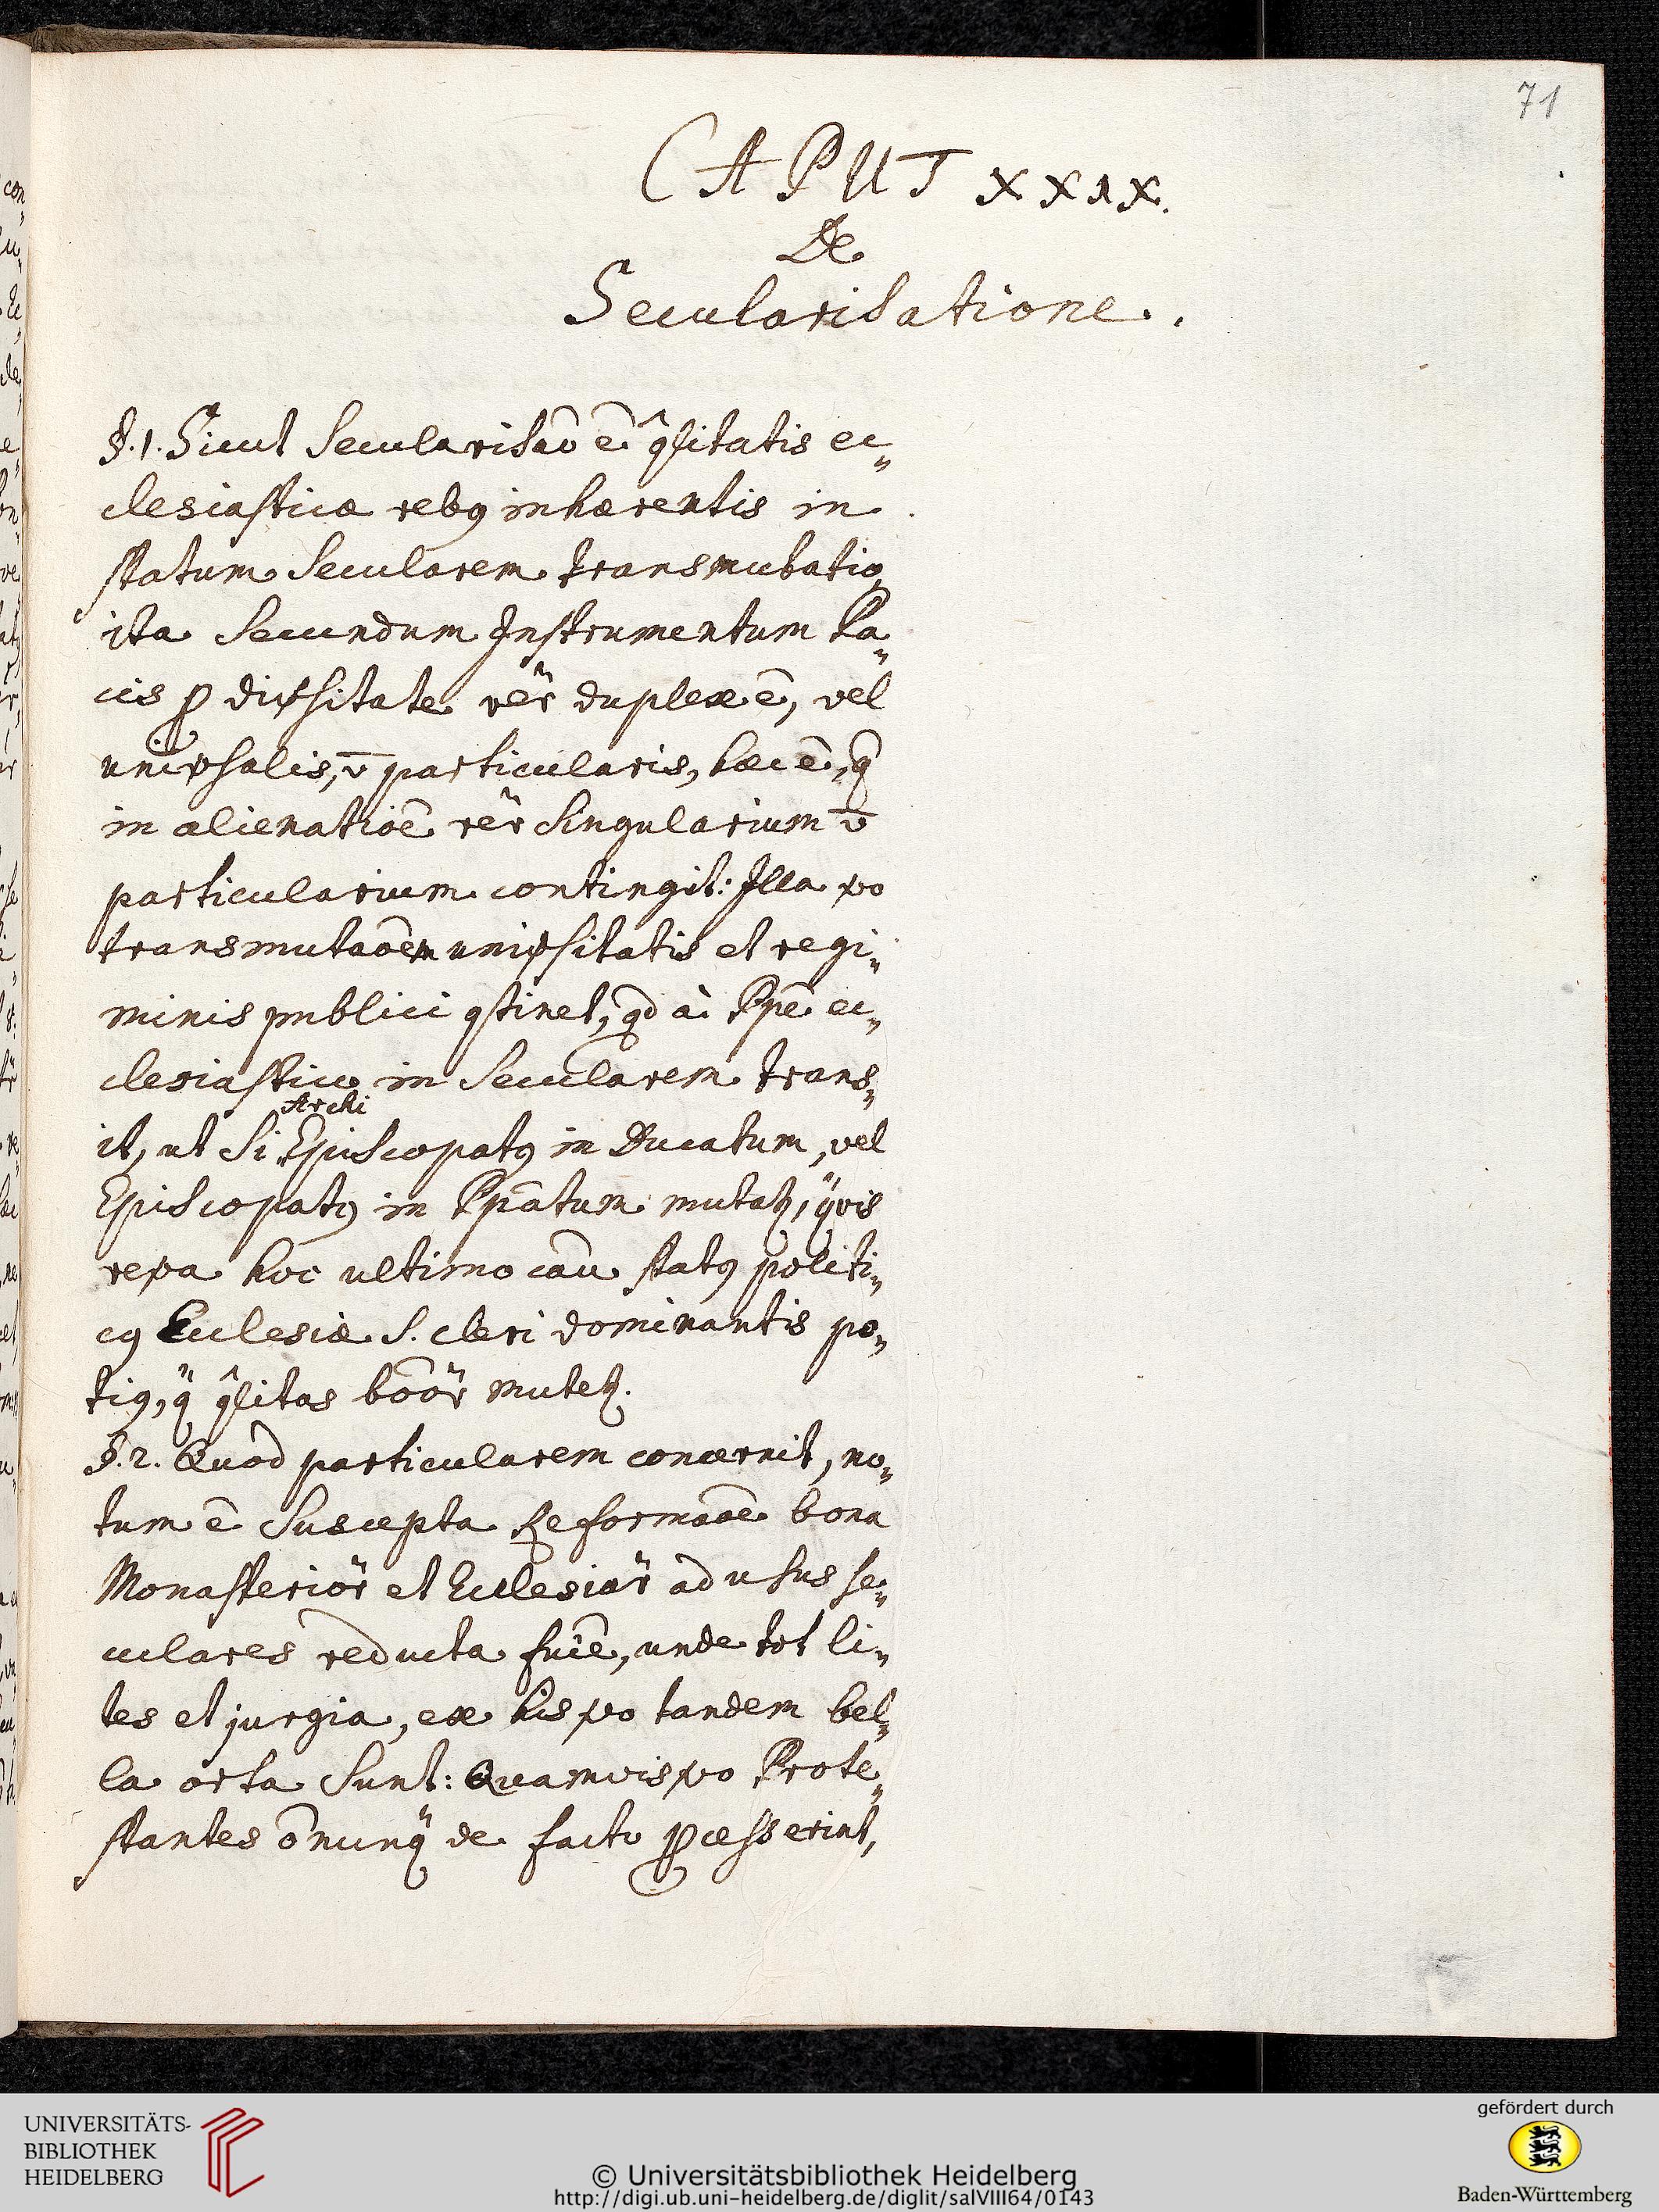 71
CAPUT XXIX.
De
Secularisatione.
§. 1. Sicut Secularisaõ ẽ q̂litatis ec„
clesiasticæ rebꝯ inhærentis in
statum Secularem transmutatio
ita Secundum Instrumentum Pa„
cis ꝓ diꝟsitate rer̃ duplex ẽ, vel
uniꝟsalis, v̄ particularis, hæc ẽ, q̃
in alienatiõe rer̃ Singularium v̄
particularium contingit: Illa ꝟo
transmutaõem uniꝟsitatis et regi„
minis publici ꝯtinet, qd à Ppe ec„
clesiastico in Secularem trans„
Archi
it, ut Si Episcopatꝯ in Ducatum, vel
Episcopatꝯ in Ppatum mutatʒ, q̃vis
reꝟa hoc ultimo cãu statꝯ politi„
cꝯ Ecclesiæ S. cleri dominantis po„
tiꝯ, q̃ q̂litas boõr mutetʒ.
§. 2. Quod particularem concernit, no„
tum ẽ Suscepta Reformaõe bona
Monasterior̃ et Ecclesiar̃ ad usus se„
culares reducta fuiẽ, unde tot li„
tes et jurgia, ex his ꝟo tandem bel„
la orta Sunt: Quamvis ꝟo Prote„
stantes õnunq̃ de facto ꝓcesserint,
con„
UNIVERSITÄTS-
BIBLIOTHEK
HEIDELBERG
© Universitätsbibliothek Heidelberg
http://digi.ub.uni-heidelberg.de/diglit/salVIII64/0143
gefördert durch
Baden-Württemberg